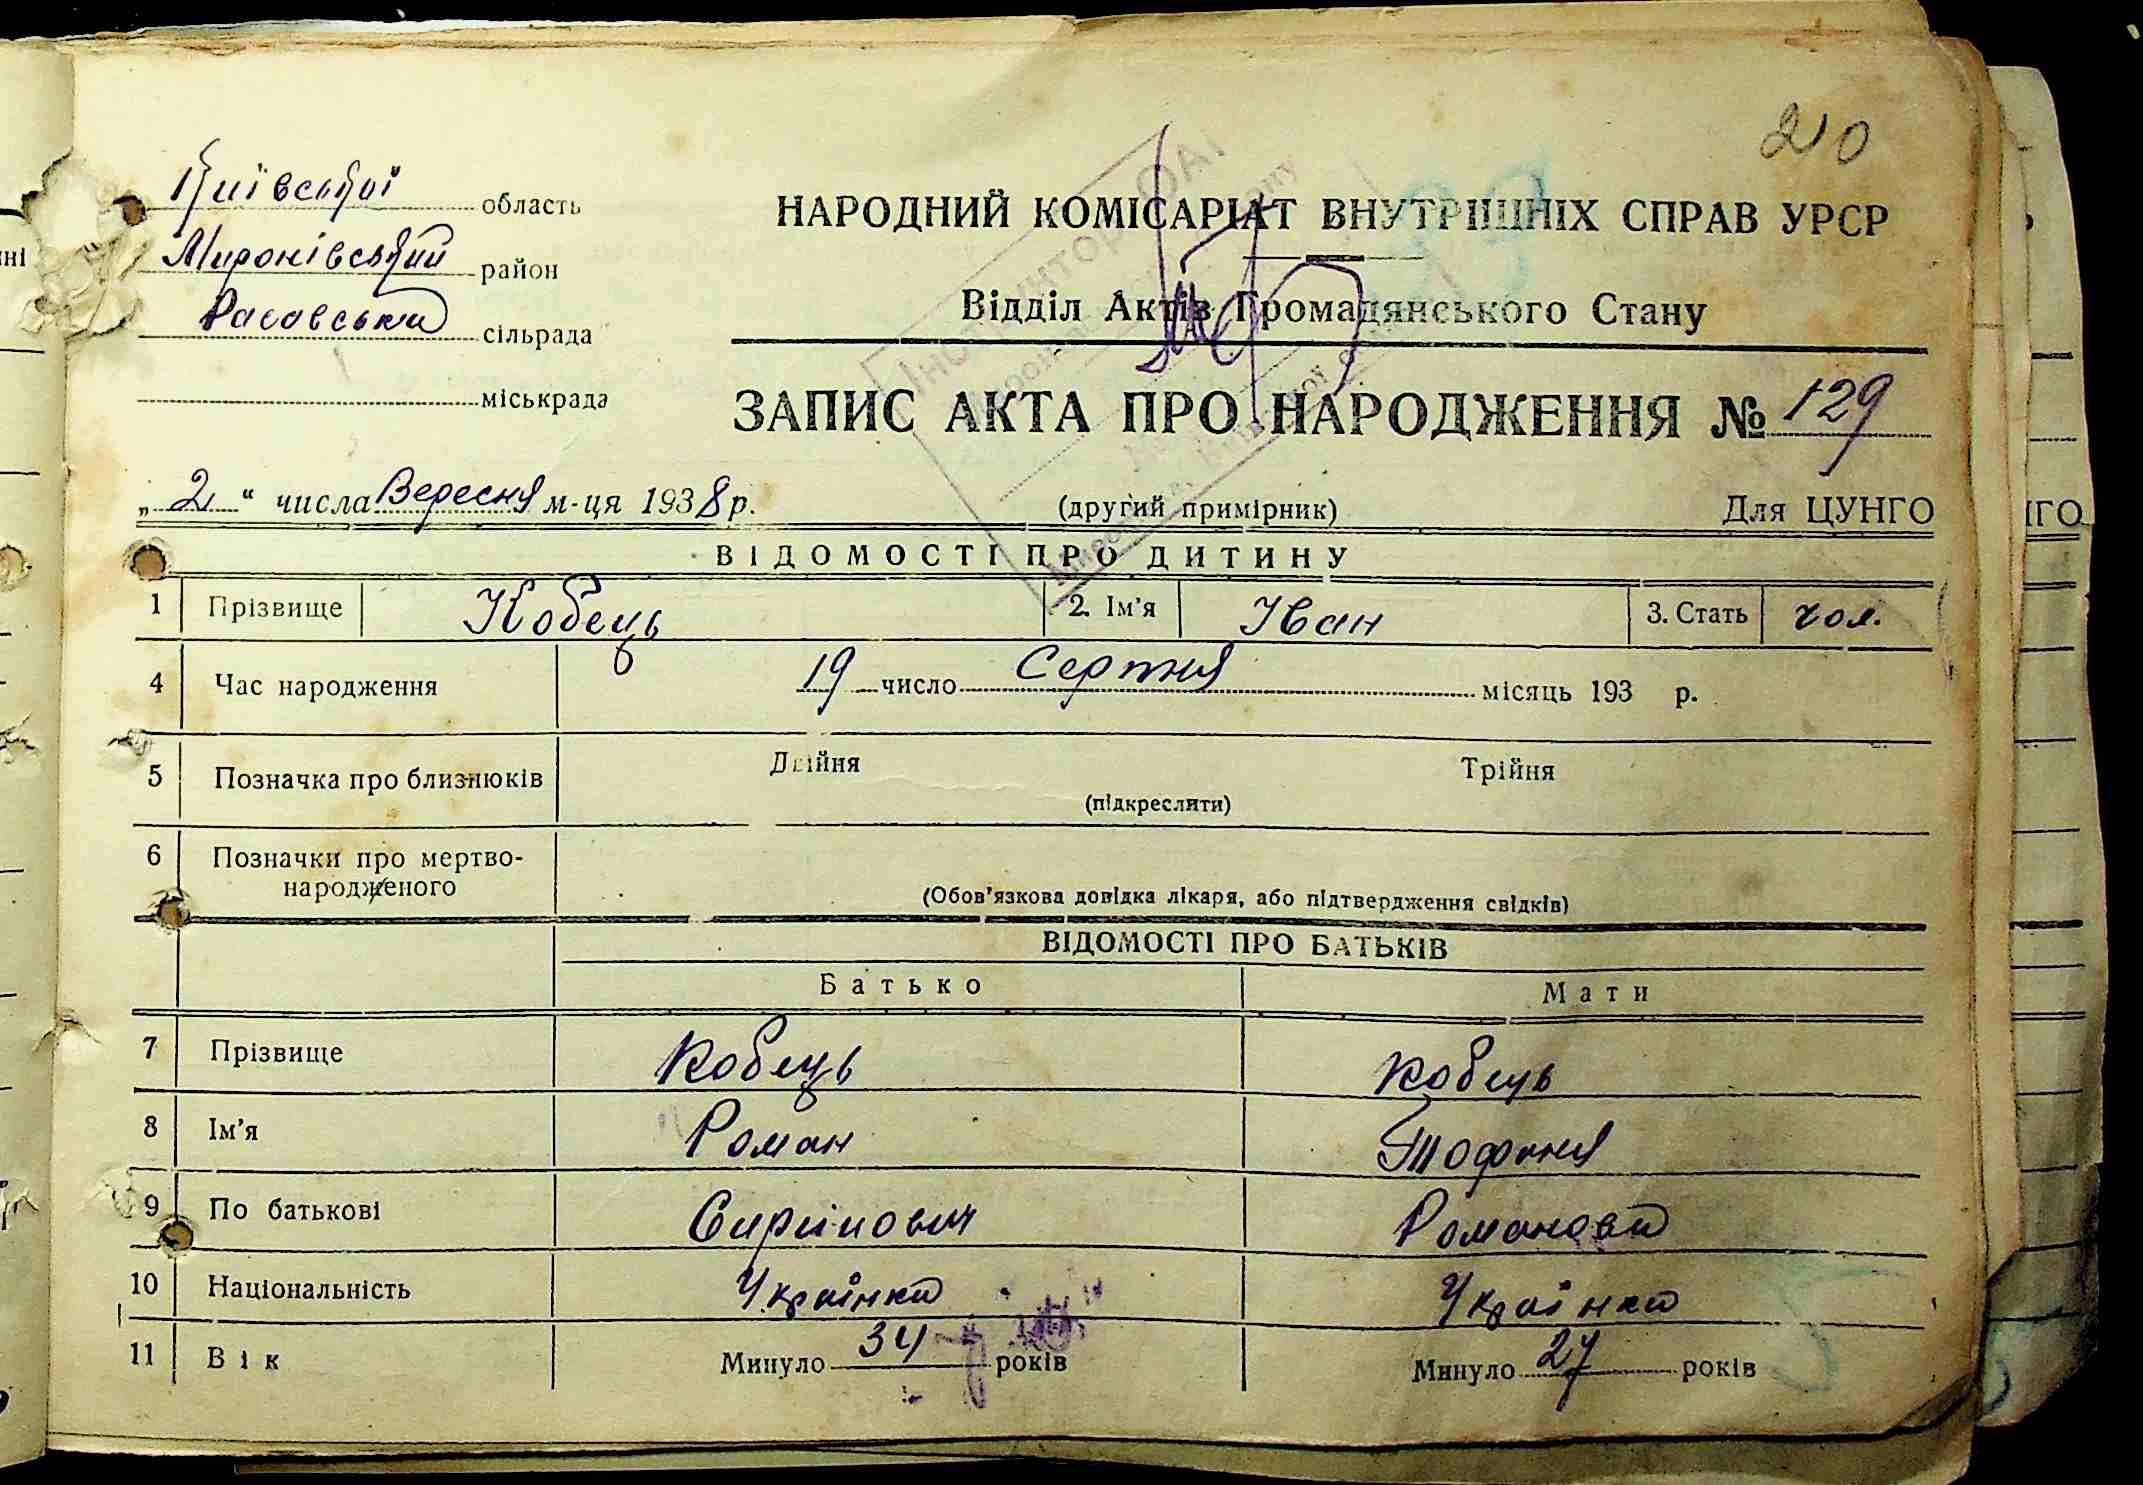 210
Київської область
Миронівський район
Расавська сільрада
міськрада
НАРОДНИЙ КОМІСАРІАТ ВНУТРІШНІХ СПРАВ УРСР
Відділ Актів Громадянського Стану
ЗАПИС АКТА ПРО НАРОДЖЕННЯ № 129
„2“ числа Вересня м-ця 1938 р. (другий примірник) Для ЦУНГО
ВІДОМОСТІ ПРО ДИТИНУ
1 Прізвище Кобець 2. Ім'я Іван 3. Стать чол.
4 Час народження 19 число Серпня місяць 193 р.
5 Позначка про близнюків Двійня Трійня
(підкреслити)
6 Позначки про мертво-
народженого (Обов'язкова довідка лікаря, або підтвердження свідків)
ВІДОМОСТІ ПРО БАТЬКІВ
Батько Мати
7 Прізвище Кобець Кобець
8 Ім'я Роман
9 По батькові Романова
10 Національність Українка Українка
11 Вік Минуло 34 років Минуло 27 років